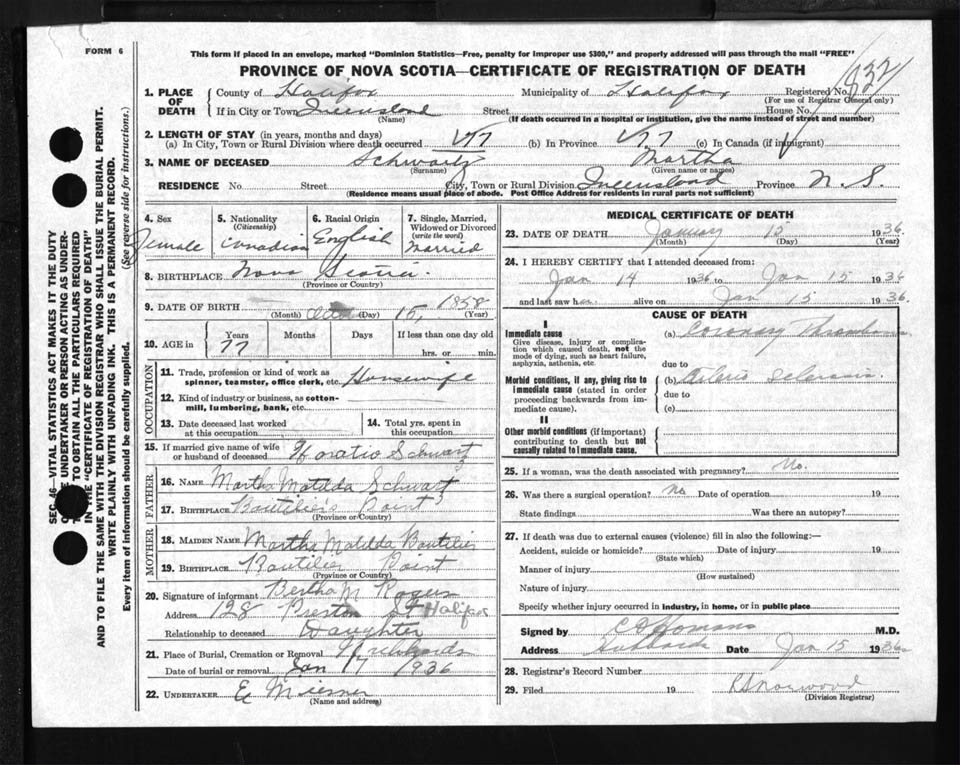 FORM 6
This form if placed in an envelope, marked "Dominion Statistics—Free, penalty for improper use $300," and properly addressed will pass through the mail "FREE"
PROVINCE OF NOVA SCOTIA—CERTIFICATE OF REGISTRATION OF DEATH
SEC. 46—VITAL STATISTICS ACT MAKES IT THE DUTY
UNDERTAKER OR PERSON ACTING AS UNDER-
TO OBTAIN ALL THE PARTICULARS REQUIRED
IN THE "CERTIFICATE OF REGISTRATION OF DEATH"
AND TO FILE THE SAME WITH THE DIVISION REGISTRAR WHO SHALL ISSUE THE BURIAL PERMIT.
WRITE PLAINLY WITH UNFADING INK. THIS IS A PERMANENT RECORD.
Every item of information should be carefully supplied. (See reverse side for instructions.)
1. PLACE OF DEATH County of Halifax Municipality of Halifax Registered No.
(For use of Registrar General only)
If in City or Town Queensland Street House No.
(Name) (If death occurred in a hospital or institution, give the name instead of street and number)
2. LENGTH OF STAY (in years, months and days)
(a) In City, Town or Rural Division where death occurred 77 (b) In Province 77 (c) In Canada (if immigrant)
3. NAME OF DECEASED Schwartz Martha
(Surname) (Given name or names)
RESIDENCE No. Street City, Town or Rural Division Queensland Province N. S.
(Residence means usual place of abode. Post Office Address for residents in rural parts not sufficient)
4. Sex Female
5. Nationality (Citizenship) Canadian
6. Racial Origin English
7. Single, Married, Widowed or Divorced (write the word) Married
8. BIRTHPLACE Nova Scotia
(Province or Country)
9. DATE OF BIRTH 15, 1858
(Month) (Day) (Year)
10. AGE in Years 77 Months Days If less than one day old
hrs. or min.
OCCUPATION
11. Trade, profession or kind of work as spinner, teamster, office clerk, etc. Housewife
12. Kind of industry or business, as cotton-mill, lumbering, bank, etc.
13. Date deceased last worked at this occupation
14. Total yrs. spent in this occupation
15. If married give name of wife or husband of deceased Horatio Schwartz
FATHER
16. NAME Martha Matilda Schwart
17. BIRTHPLACE Boutilier's Point
(Province or Country)
MOTHER
18. MAIDEN NAME Martha Matilda Boutilier
19. BIRTHPLACE Boutilier Point
(Province or Country)
20. Signature of informant Bertha M Rogers
Address 128 Preston St Halifax
Relationship to deceased Daughter
21. Place of Burial, Cremation or Removal
Date of burial or removal Jan 17 1936
22. UNDERTAKER E
(Name and address)
MEDICAL CERTIFICATE OF DEATH
23. DATE OF DEATH January 15 1936.
(Month) (Day) (Year)
24. I HEREBY CERTIFY that I attended deceased from:
Jan 14 1936 to Jan 15 1936
and last saw her alive on Jan 15 1936.
CAUSE OF DEATH
I
Immediate cause
Give disease, injury or complication which caused death, not the mode of dying, such as heart failure, asphyxia, asthenia, etc.
(a) Coronary Thrombosis
due to
Morbid conditions, if any, giving rise to immediate cause (stated in order proceeding backwards from immediate cause).
(b) Sclerosis.
due to
(c)
II
Other morbid conditions (if important) contributing to death but not causally related to immediate cause.
25. If a woman, was the death associated with pregnancy? No.
26. Was there a surgical operation? No Date of operation 19
State findings Was there an autopsy?
27. If death was due to external causes (violence) fill in also the following:—
Accident, suicide or homicide? Date of injury 19
(State which)
Manner of injury
(How sustained)
Nature of injury
Specify whether injury occurred in industry, in home, or in public place
Signed by M.D.
Address Hubbards Date Jan 15 1936
28. Registrar's Record Number
29. Filed 19
(Division Registrar)